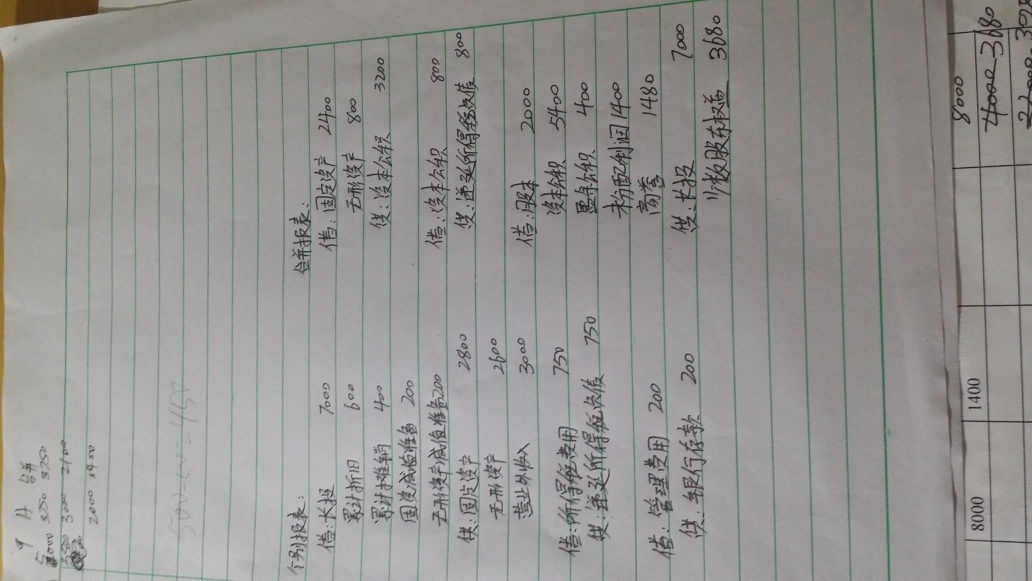 合并
3250 3250
2000 1950
500-50=450
个别报表:
借:长投 7000
累计折旧 600
累计摊销 400
固资减值准备 200
无形资产减值准备200
贷:固定资产 2800
无形资产 2600
营业外收入 3000
借:所得税费用 750
贷:递延所得税负债 750
借:管理费用 200
贷:银行存款 200
合并报表:
借:固定资产 2400
无形资产 800
贷:资本公积 3200
借:资本公积 800
贷:递延所得税负债 800
借:股本 2000
资本公积 5400
盈余公积 400
未分配利润1400
商誉 1480
贷:长投 7000
少数股东权益 3680
8000 1400 8000
4000 3680